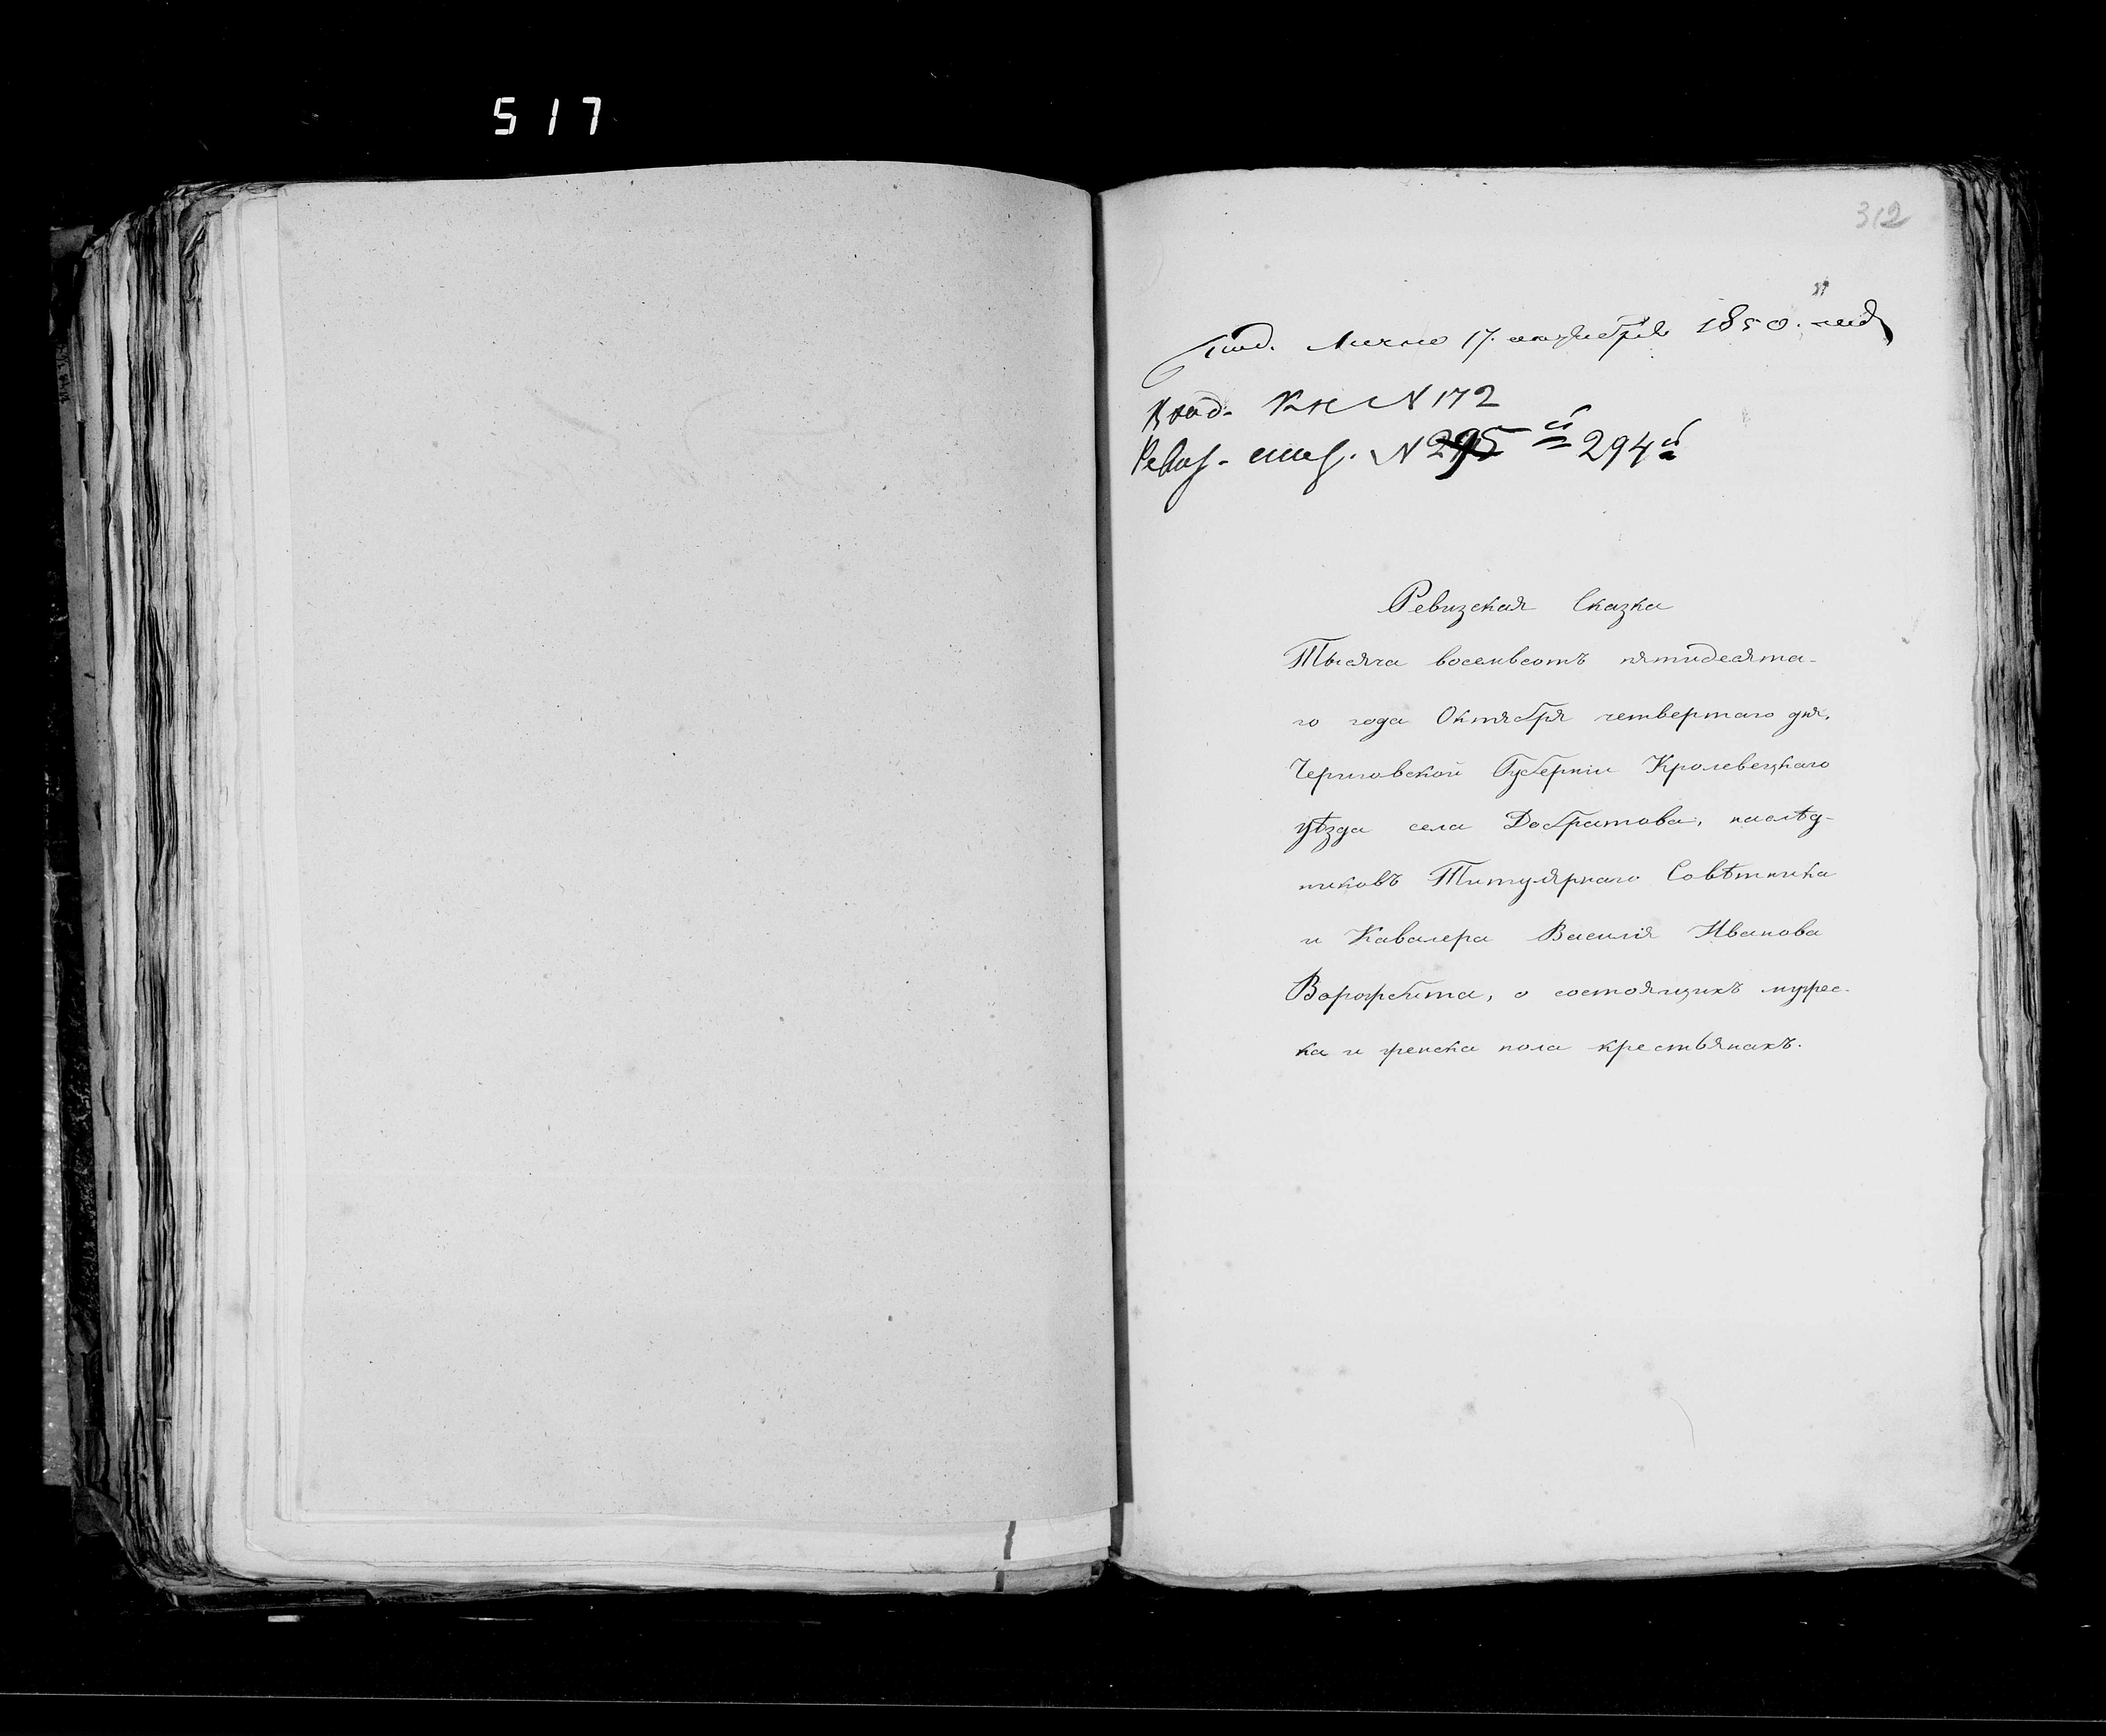 517
312
Под. Лично 17. октября 1850. года
Вход. Кн N 172
Ревиз. сказ. N 295 й 294 й
Ревизская Сказка
Тысяча восемьсотъ пятидесята-
го года Октября четвертаго дня,
Черниговской Губерніи Кролевецкаго
уѣзда села Добратова, наслѣд-
никовъ Титулярнаго Совѣтника
и Кавалера Василія Иванова
Ворожбита, о состоящихъ мужес-
ка и женска пола крестьянахъ.